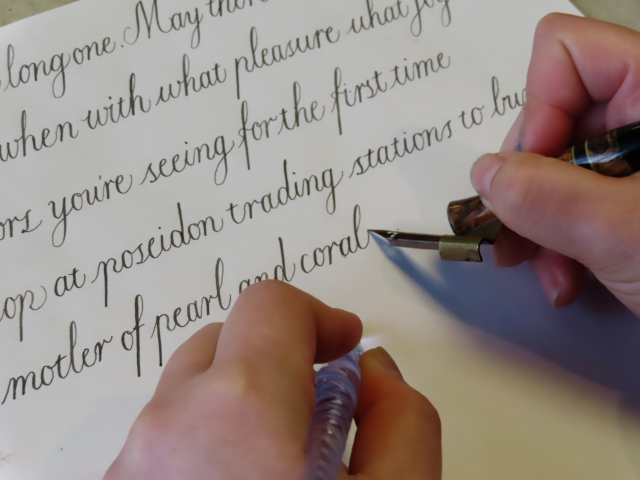 long one. May ther
when with what pleasure what joy
ors you're seeing for the first time
op at poseidon trading stations to bu
motler of pearl and coral